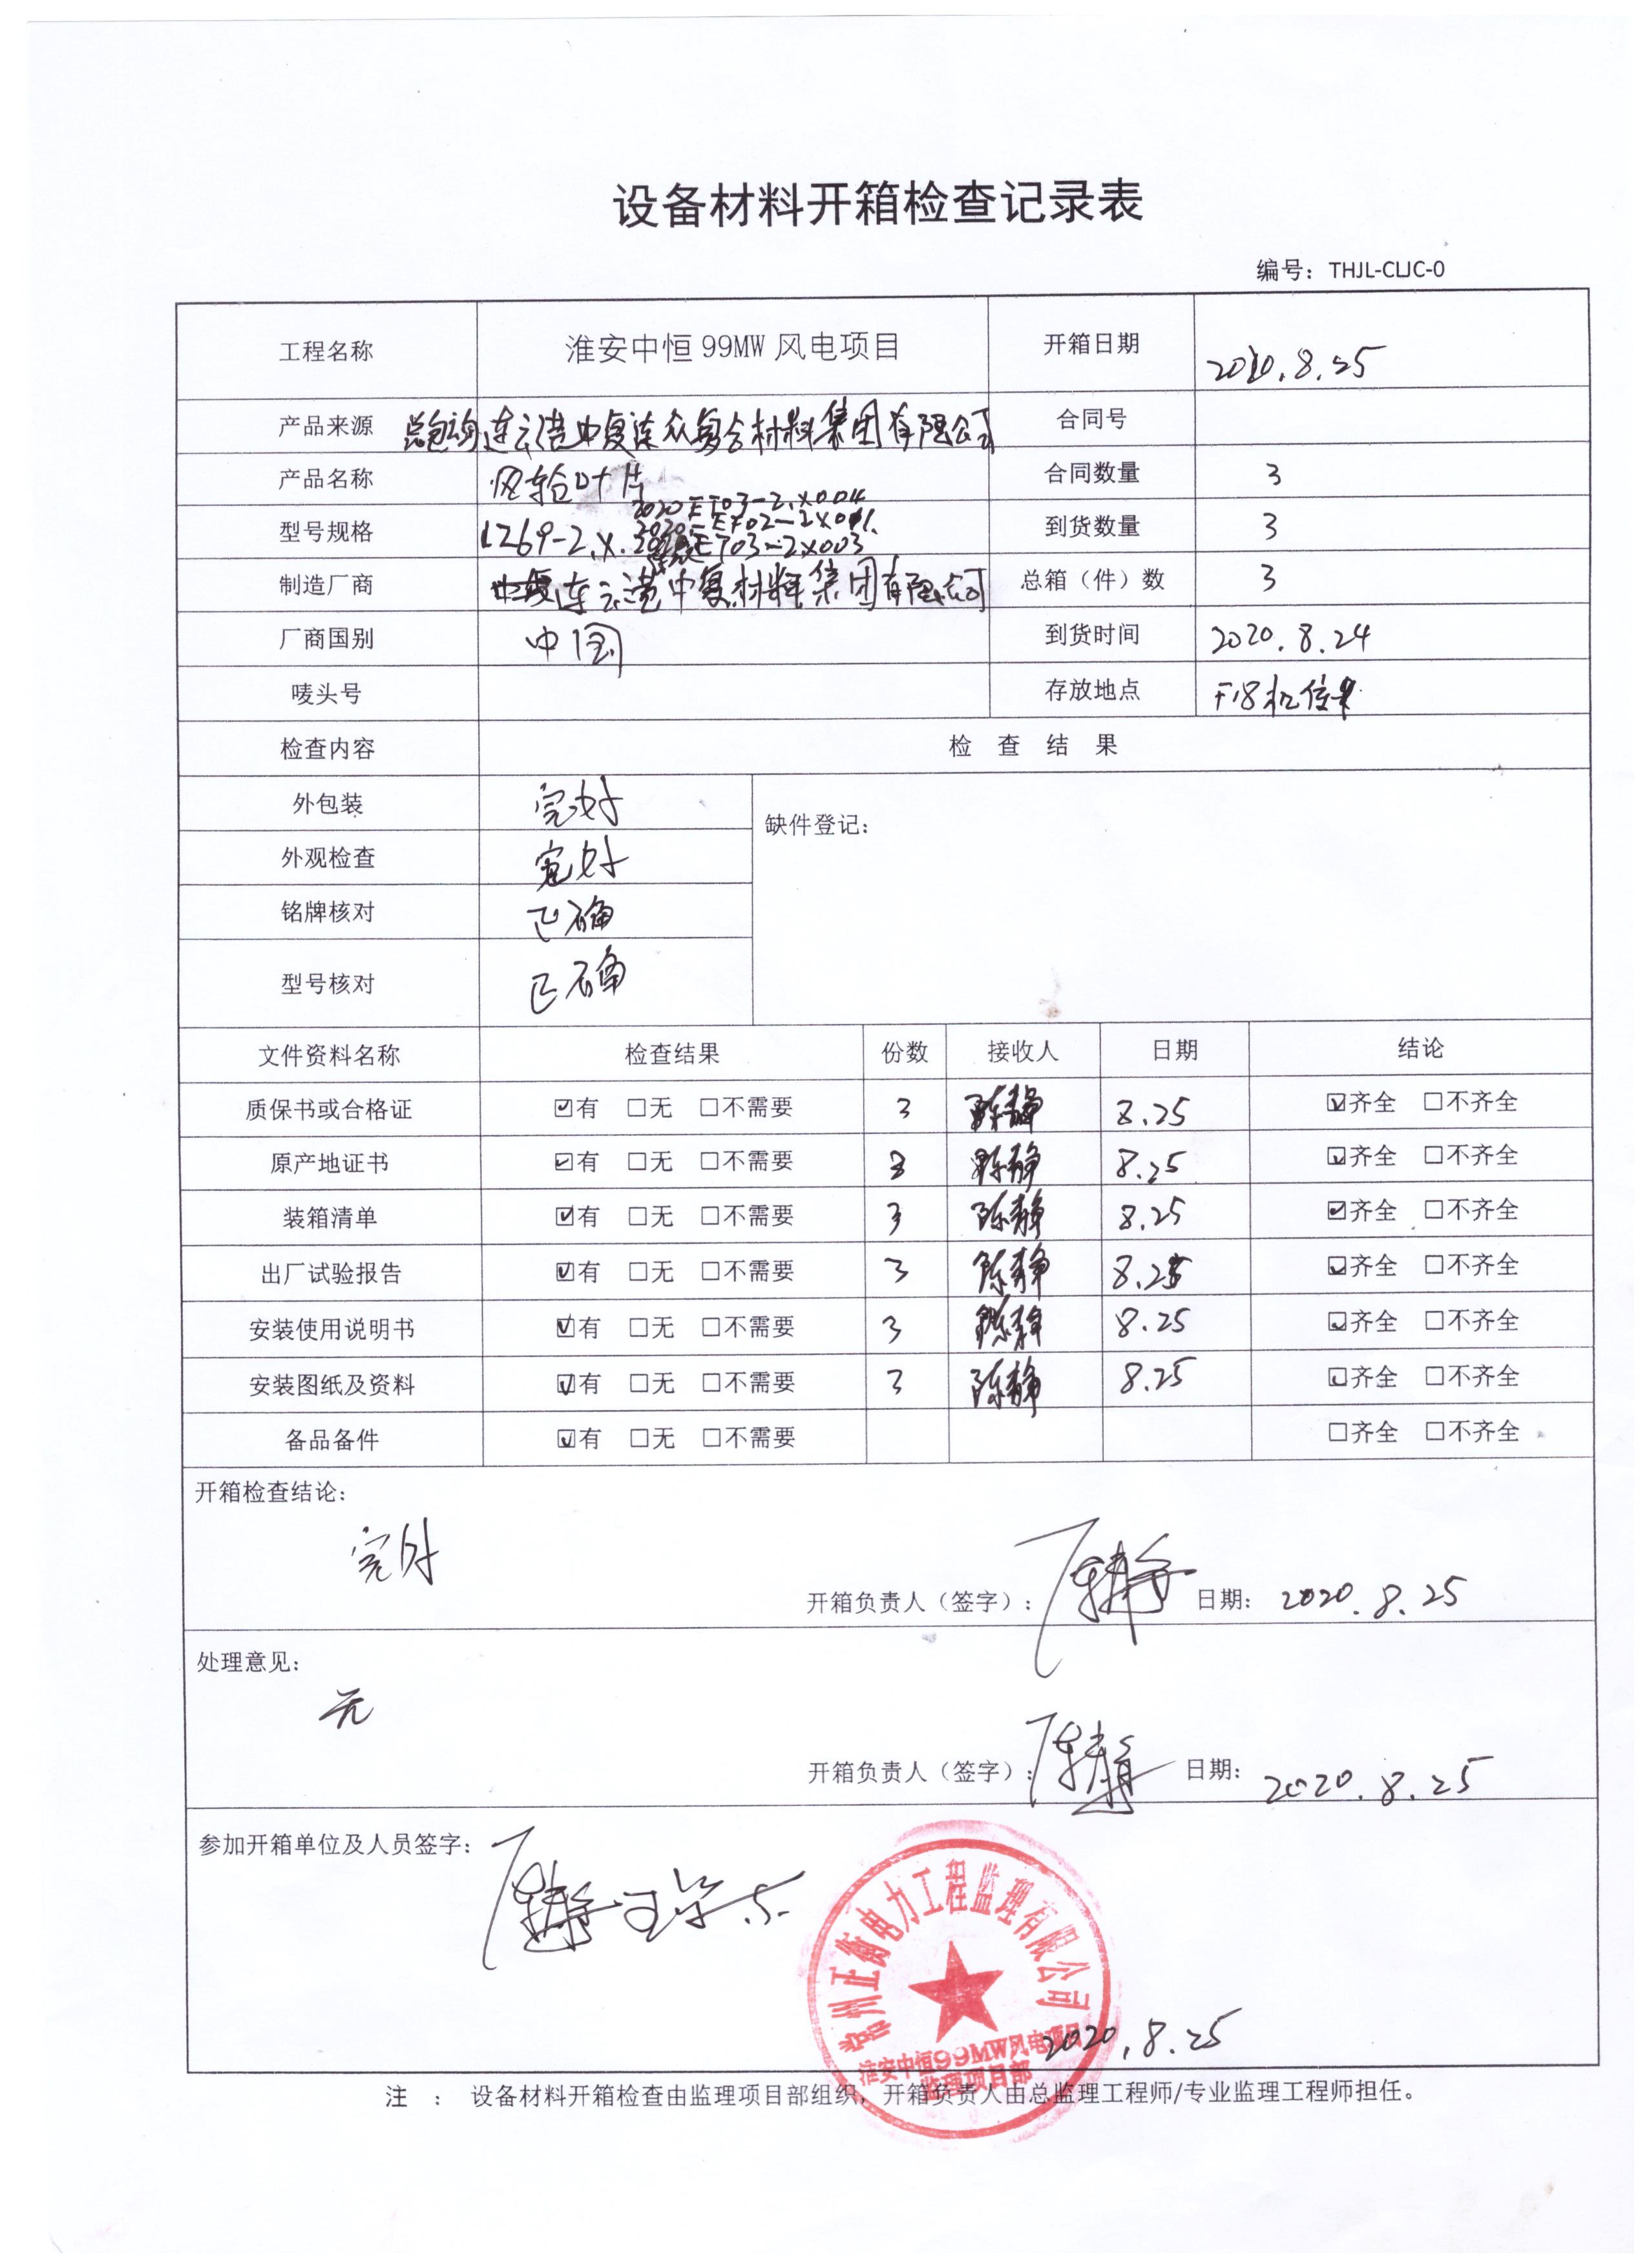 设备材料开箱检查记录表
编号：THJL-CLJC-0
工程名称 淮安中恒99MW风电项目 开箱日期 2020.8.25
产品来源 连云港中复连众复合材料集团有限公司 合同号
产品名称 风轮叶片 合同数量 3
2020ET03-2.X004
型号规格 LZ69-2.X. 到货数量 3
制造厂商 连云港中复材料集团有限公司 总箱（件）数 3
厂商国别 中国 到货时间 2020.8.24
唛头号 存放地点 F18机位
检查内容 检 查 结 果
外包装 完好 缺件登记：
外观检查 完好
铭牌核对 正确
型号核对 正确
文件资料名称 检查结果 份数 接收人 日期 结论
质保书或合格证 ☑有 □无 □不需要 3 陈静 8.25 ☑齐全 □不齐全
原产地证书 ☑有 □无 □不需要 3 陈静 8.25 ☑齐全 □不齐全
装箱清单 ☑有 □无 □不需要 3 陈静 8.25 ☑齐全 □不齐全
出厂试验报告 ☑有 □无 □不需要 3 陈静 8.25 ☑齐全 □不齐全
安装使用说明书 ☑有 □无 □不需要 3 陈静 8.25 ☑齐全 □不齐全
安装图纸及资料 ☑有 □无 □不需要 3 陈静 8.25 ☑齐全 □不齐全
备品备件 ☑有 □无 □不需要 □齐全 □不齐全
开箱检查结论：
完好
开箱负责人（签字）：陈静 日期：2020.8.25
处理意见：
无
开箱负责人（签字）：陈静 日期：2020.8.25
参加开箱单位及人员签字：陈静
常州正衡电力工程监理有限公司
淮安中恒99MW风电项目
监理项目部
2020.8.25
注 ： 设备材料开箱检查由监理项目部组织，开箱负责人由总监理工程师/专业监理工程师担任。